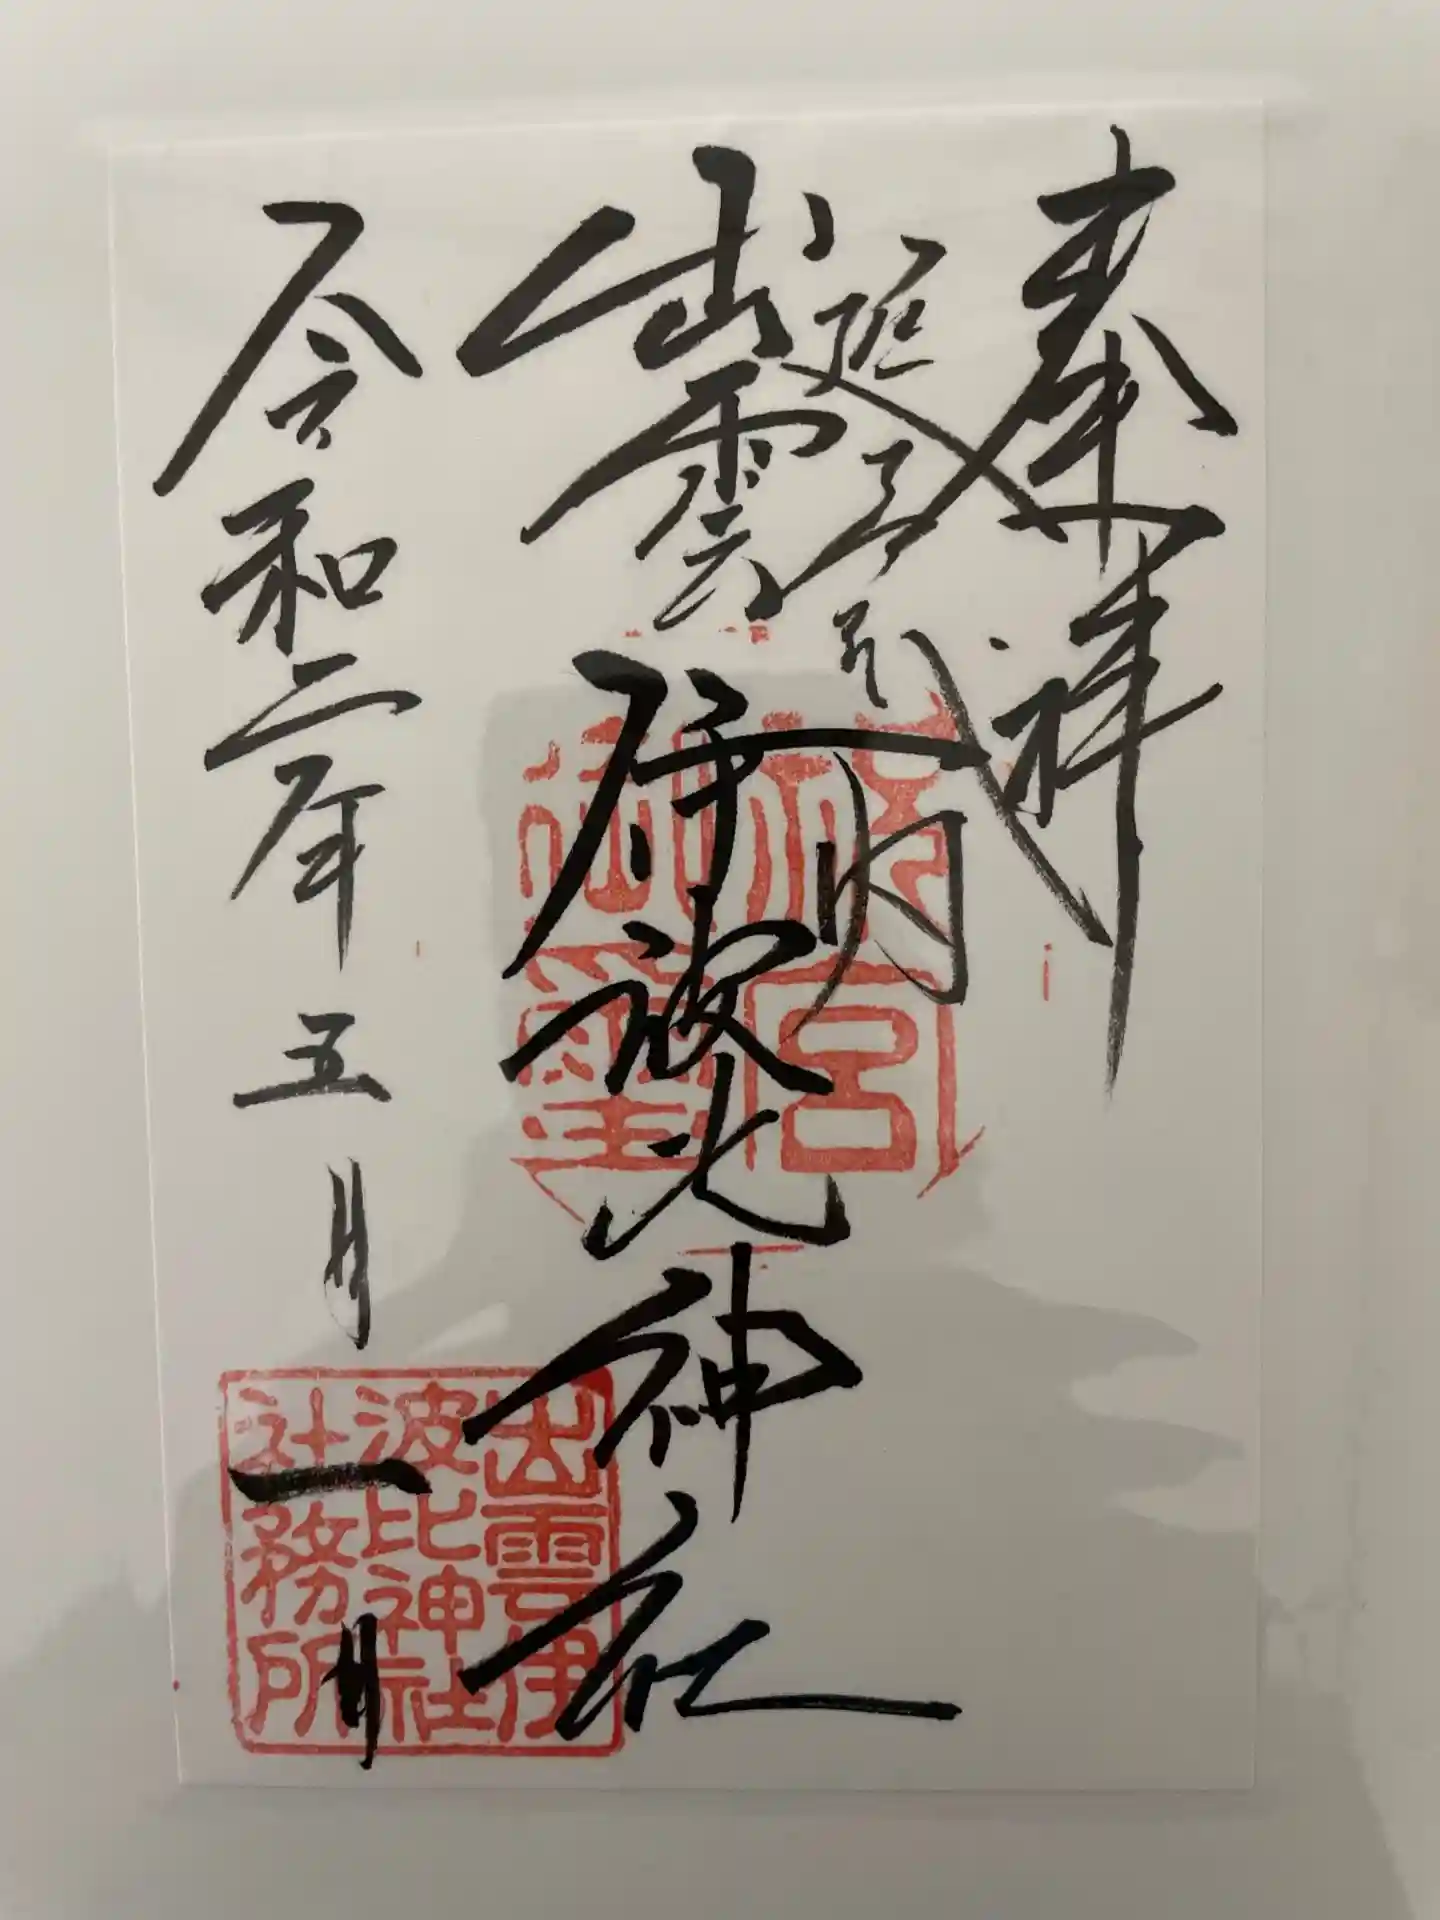 奉拝
延喜式内
出雲伊波比神社
令和二年五月一日
御璽
出雲伊
波比神社
社務所